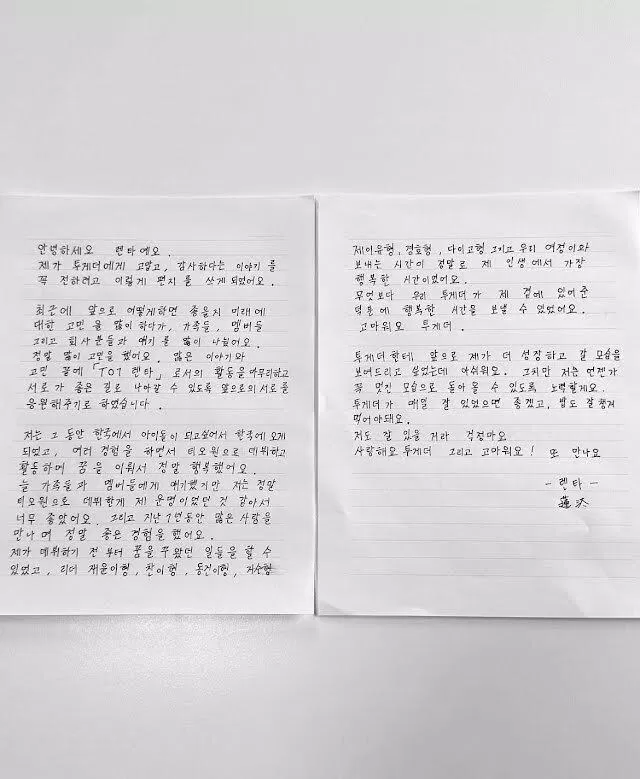 안녕하세요 렌타예요.
제가 투게더에게 고맙고, 감사하다는 이야기 를
꼭 전하려고 이렇게 편지를 쓰게 되었어요.
최근에 앞으로 어떻게하면 좋을지 미래에
대한 고민 을 많이 하다가, 가족들, 멤버들
그리고 회사 분들과 얘기 를 많이 나눴어요.
정말 많이 고민을 했어요. 많은 이야기와
고민 끝에 「TO1 렌타」로서의 활동을 마무리하고
서로가 좋은 길로 나아갈 수 있도록 앞으로의 서로를
응원해주기로 하였습니다.
저는 그 동안 한국에서 아이돌이 되고싶어서 한국에 오게
되었고, 여러 경험을 하면서 티오원으로 데뷔하고
활동하며 꿈을 이뤄서 정말 행복했어요.
늘 가족들과 멤버들에게 얘기했지만 저는 정말
티오원으로 데뷔한게 제 운명이었던 것 같아서
너무 좋았어요. 그리고 지난 1년동안 많은 사람을
만나며 정말 좋은 경험을 했어요.
제가 데뷔하기 전 부터 꿈을 꾸왔던 일들을 할 수
있었고, 리더 재윤이형, 찬이형, 동건이형, 지수형
제이유형, 경호형, 다이고형 그리고 우리 여정이와
보내는 시간이 정말로 제 인생에서 가장
행복한 시간이었어요.
무엇보다 우리 투게더가 제 곁에 있어준
덕분에 행복한 시간을 보낼 수 있었어요.
고마워요 투게더.
투게더한테 앞으로 제가 더 성장하고 갈 모습을
보여드리고 싶었는데 아쉬워요. 그치만 저는 언젠가
꼭 멋진 모습으로 돌아올 수 있도록 노력할게요.
투게더가 매일 잘 있었으면 좋겠고, 밥도 잘 챙겨
먹어야돼요.
저도 잘 있을 거라 걱정마요
사랑해요 투게더 그리고 고마워요! 또 만나요
- 렌타 -
蓮汰